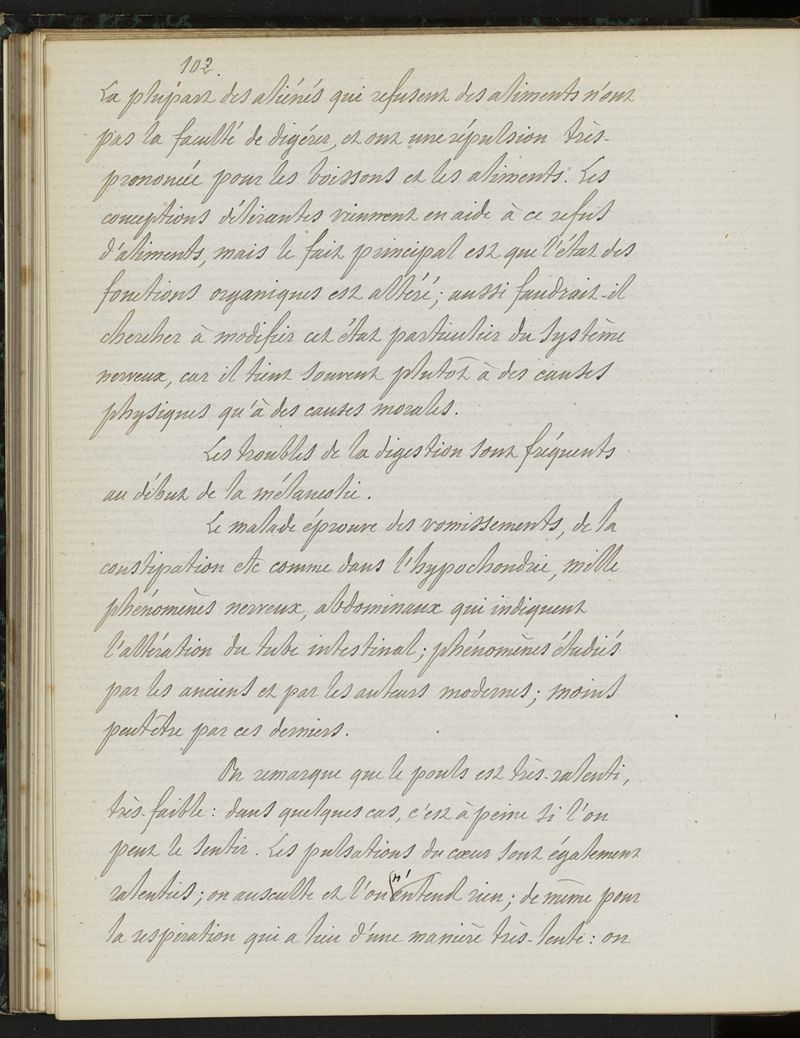 102.
La plupart des aliénés qui refusent des aliments n'ont
pas la faculté de digérer, et ont une répulsion très-
prononcée pour les boissons et les aliments. Les
conceptions délirantes viennent en aide à ce refus
d'aliments, mais le fait principal est que l'état des
fonctions organiques est altéré; aussi faudrait-il
chercher à modifier cet état particulier du système
nerveux, car il tient souvent plutôt à des causes
physiques qu'à des causes morales.
Les troubles de la digestion sont fréquents
au début de la mélancolie.
Le malade éprouve des vomissements, de la
constipation etc comme dans l'hypochondrie, mille
phénomènes nerveux, abdominaux qui indiquent
l'altération du tube intestinal; phénomènes étudiés
par les anciens et par les auteurs modernes; moins
peutêtre par ces derniers.
On remarque que le pouls est très-ralenti,
très-faible: dans quelques cas, c'est à peine si l'on
peut le sentir. Les pulsations du cœur sont également
ralenties; on ausculte et l'on n'entend rien; de même pour
la respiration qui a lieu d'une manière très-lente: on